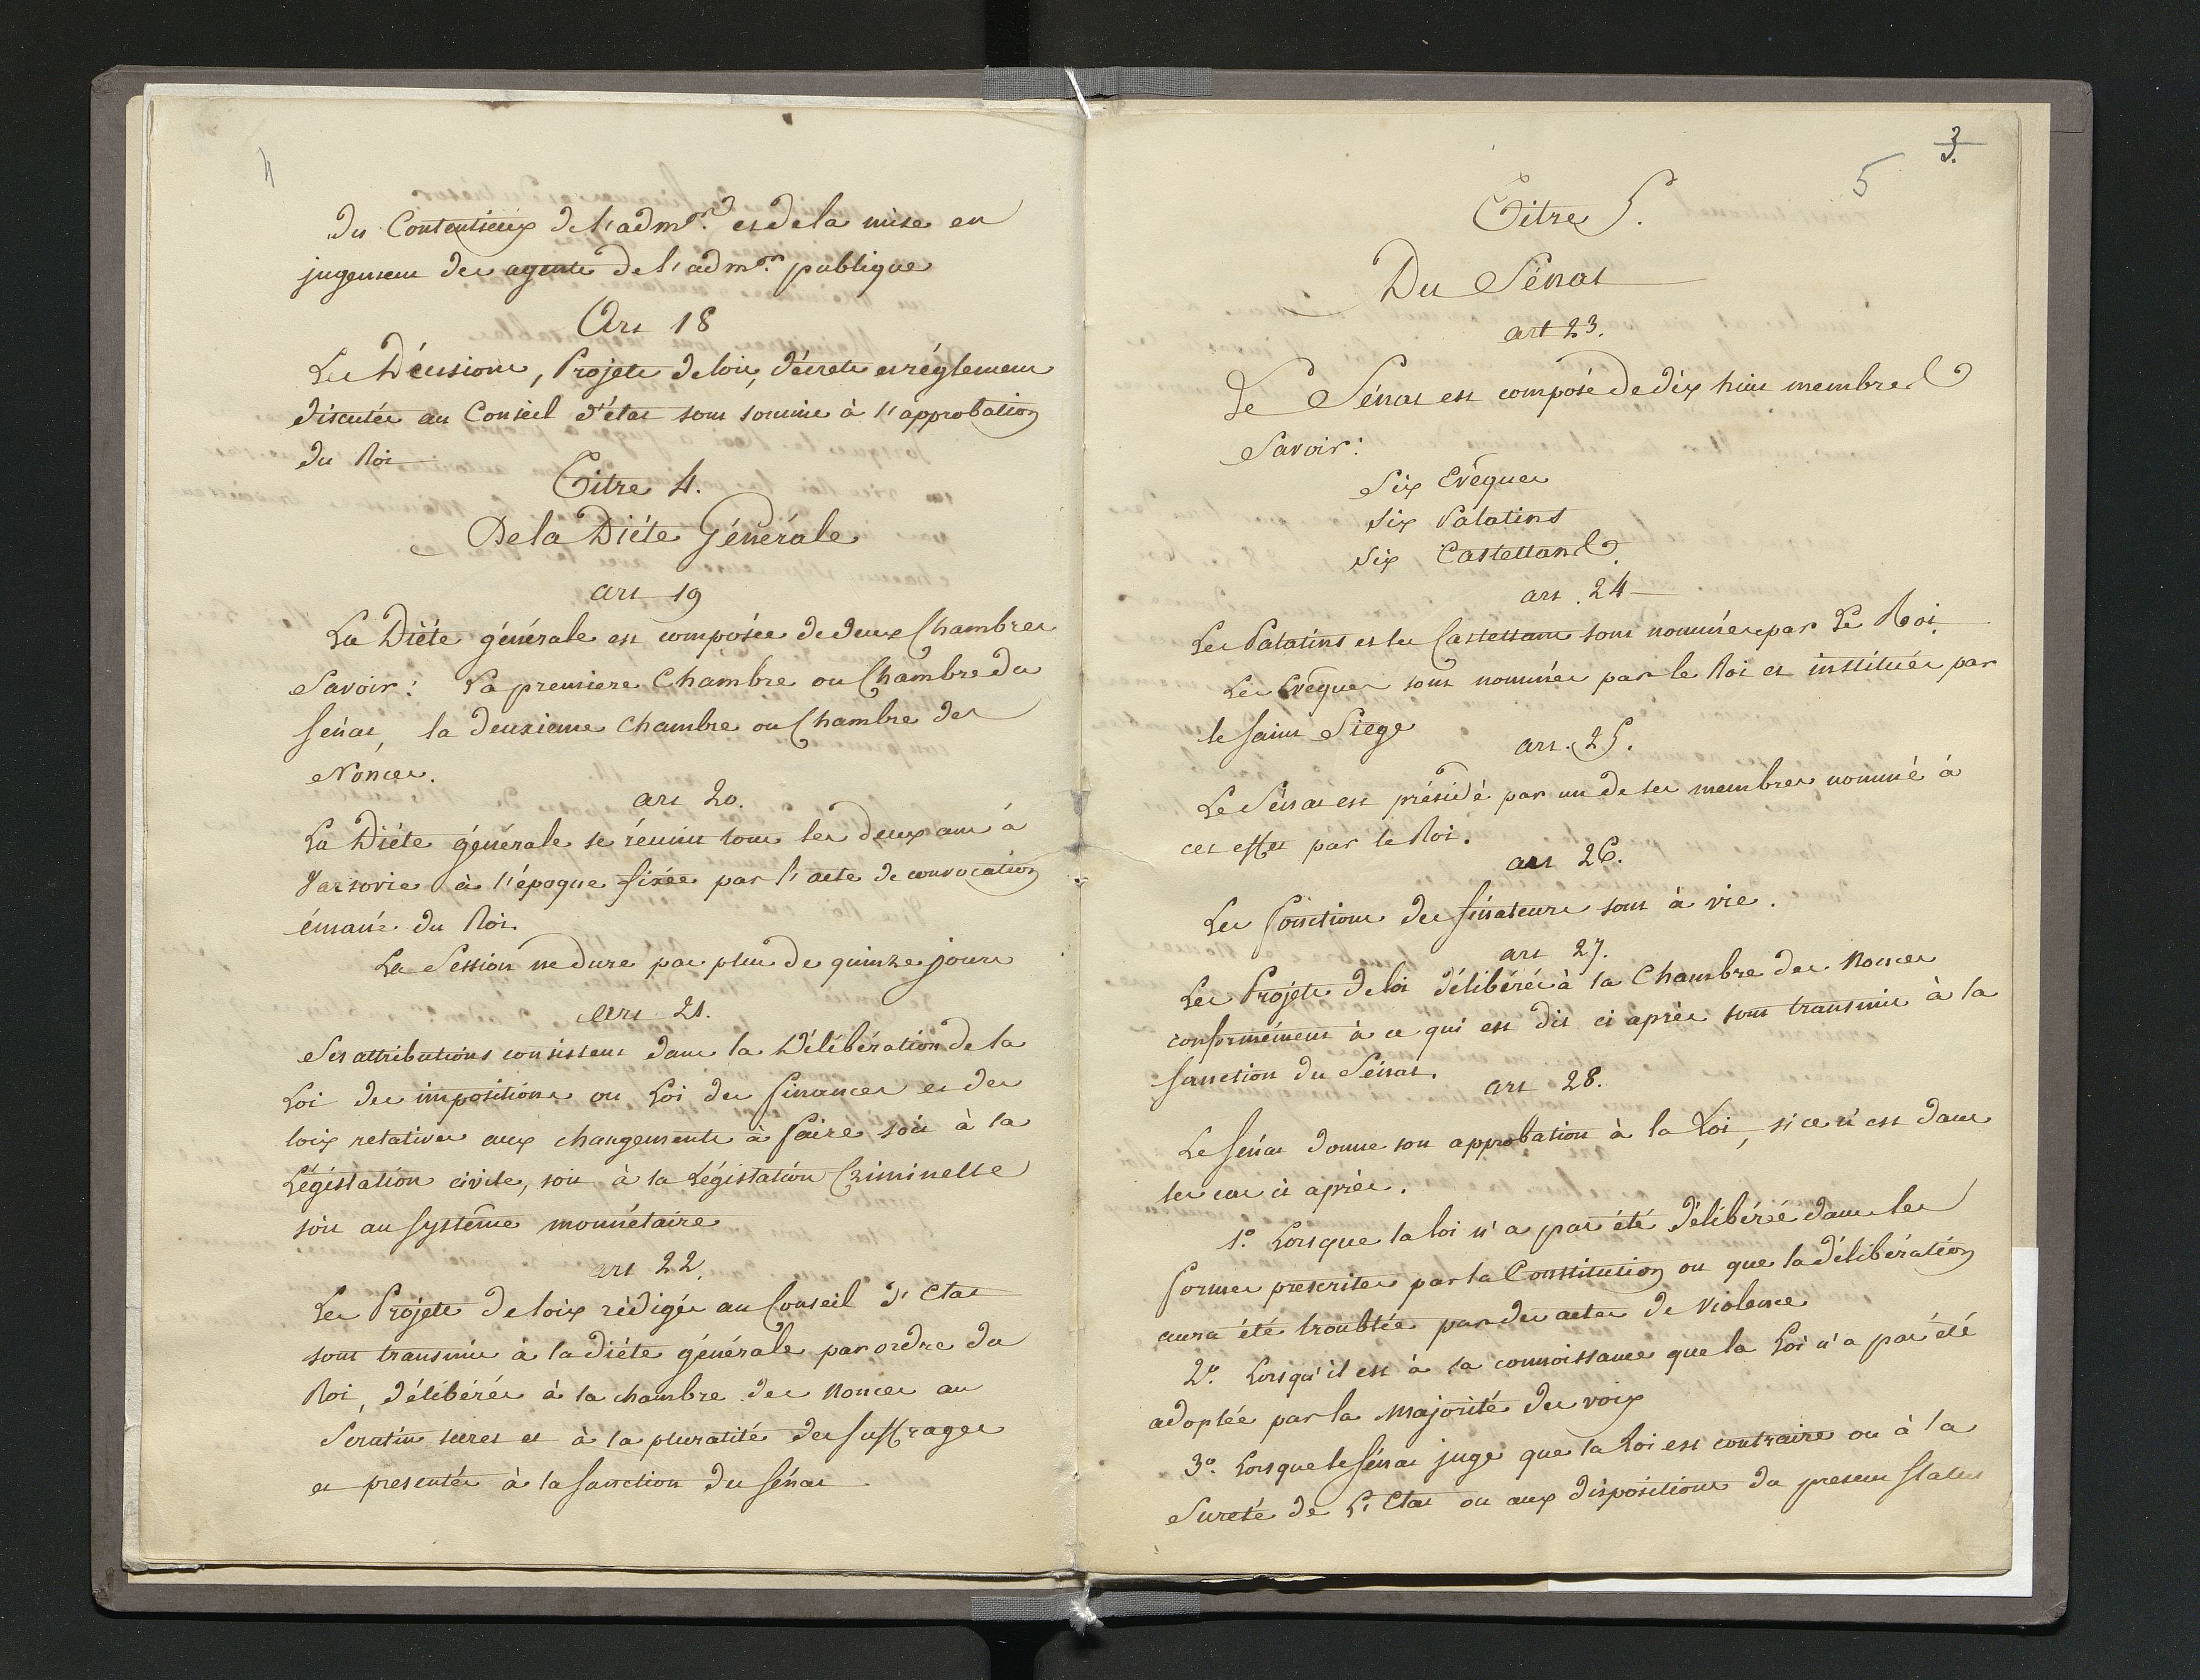 4
du Contentieux de l'adm.on et de la mise en
jugement des agents de l'adm.on publique
Art 18
Les Décisions, Projets de lois, décrets et réglemens
discutés au Conseil d'état sont soumis à l'approbation
du Roi
Titre 4.
De la Diéte Générale
art 19
La Diéte générale est composée de deux Chambres
Savoir: La premiere Chambre ou Chambre du
Sénat, la deuxieme Chambre ou Chambre des
Nonces.
art 20.
La Diéte générale se réunit tous les deux ans à
Varsovie à l'époque fixée par l'acte de convocation
émané du Roi.
La Session ne dure pas plus de quinze jours
Art 21.
Ses attributions consistent dans la Délibération de la
Loi des impositions ou Loi des finances et des
loix relatives aux changements à faire soit à la
Législation civile, soit à la Législation Criminelle
soit au Systême monnétaire
art 22.
Les Projets de loix rédigés au Conseil d'Etat
sont transmis à la diéte générale par ordre du
Roi, délibérés à la chambre des Nonces au
Scrutin secret et à la pluralité des suffrages
et presentés à la Sanction du Sénat
3.
5
Titre 5.
Du Sénat
art 23.
Le Sénat est composé de dix huit membres
Savoir:
Six Evêques
Six Palatins
Six Castellans.
art. 24
Les Palatins et les Castellans sont nommés par Le Roi.
Les Evêques sont nommés par le Roi et institués par
le Saint Siege
art. 25.
Le Sénat est présidé par un de ses membres nommé à
cet effet par le Roi.
art 26.
Les fonctions des Sénateurs sont à vie.
art 27.
Les Projets de loi délibérés à la Chambre des Nonces
conformément à ce qui est dit ci après sont transmis à la
Sanction du Sénat.
art 28.
Le Sénat donne son approbation à la Loi, si ce n'est dans
les cas ci après.
1.o Lorsque la loi n'a pas été délibérée dans les
formes prescrites par la Constitution ou que la délibération
aura été troublée par des actes de violence
2.o Lorsqu'il est à sa connoissance que la Loi n'a pas été
adoptée par la Majorité des voix
3.o Lorsque le Sénat juge que la Loi est contraire ou à la
Sureté de L'Etat ou aux dispositions du present Statut